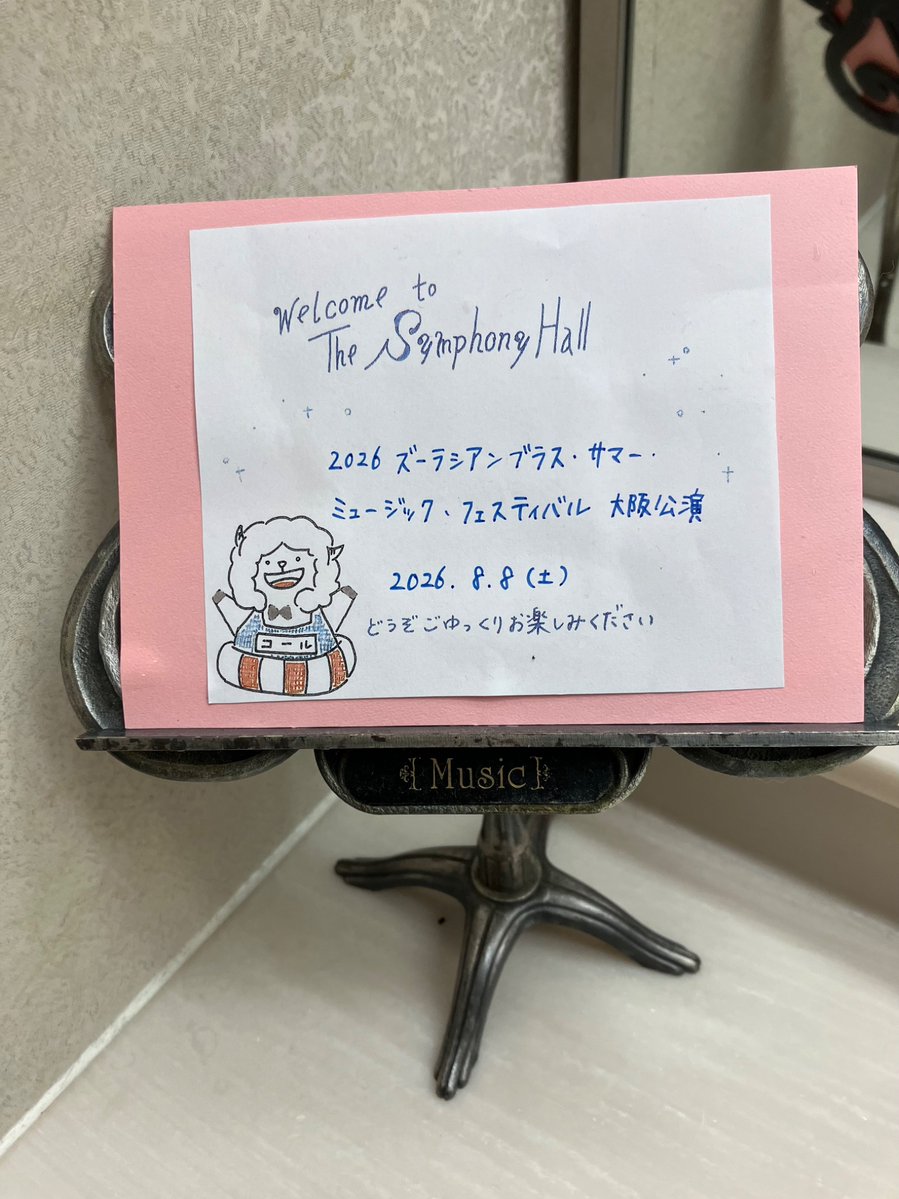 Welcome to
The Symphony Hall
2026 ズーラシアンブラス・サマー・
ミュージック・フェスティバル 大阪公演
2026. 8. 8 (土)
どうぞごゆっくりお楽しみください
コール
Music